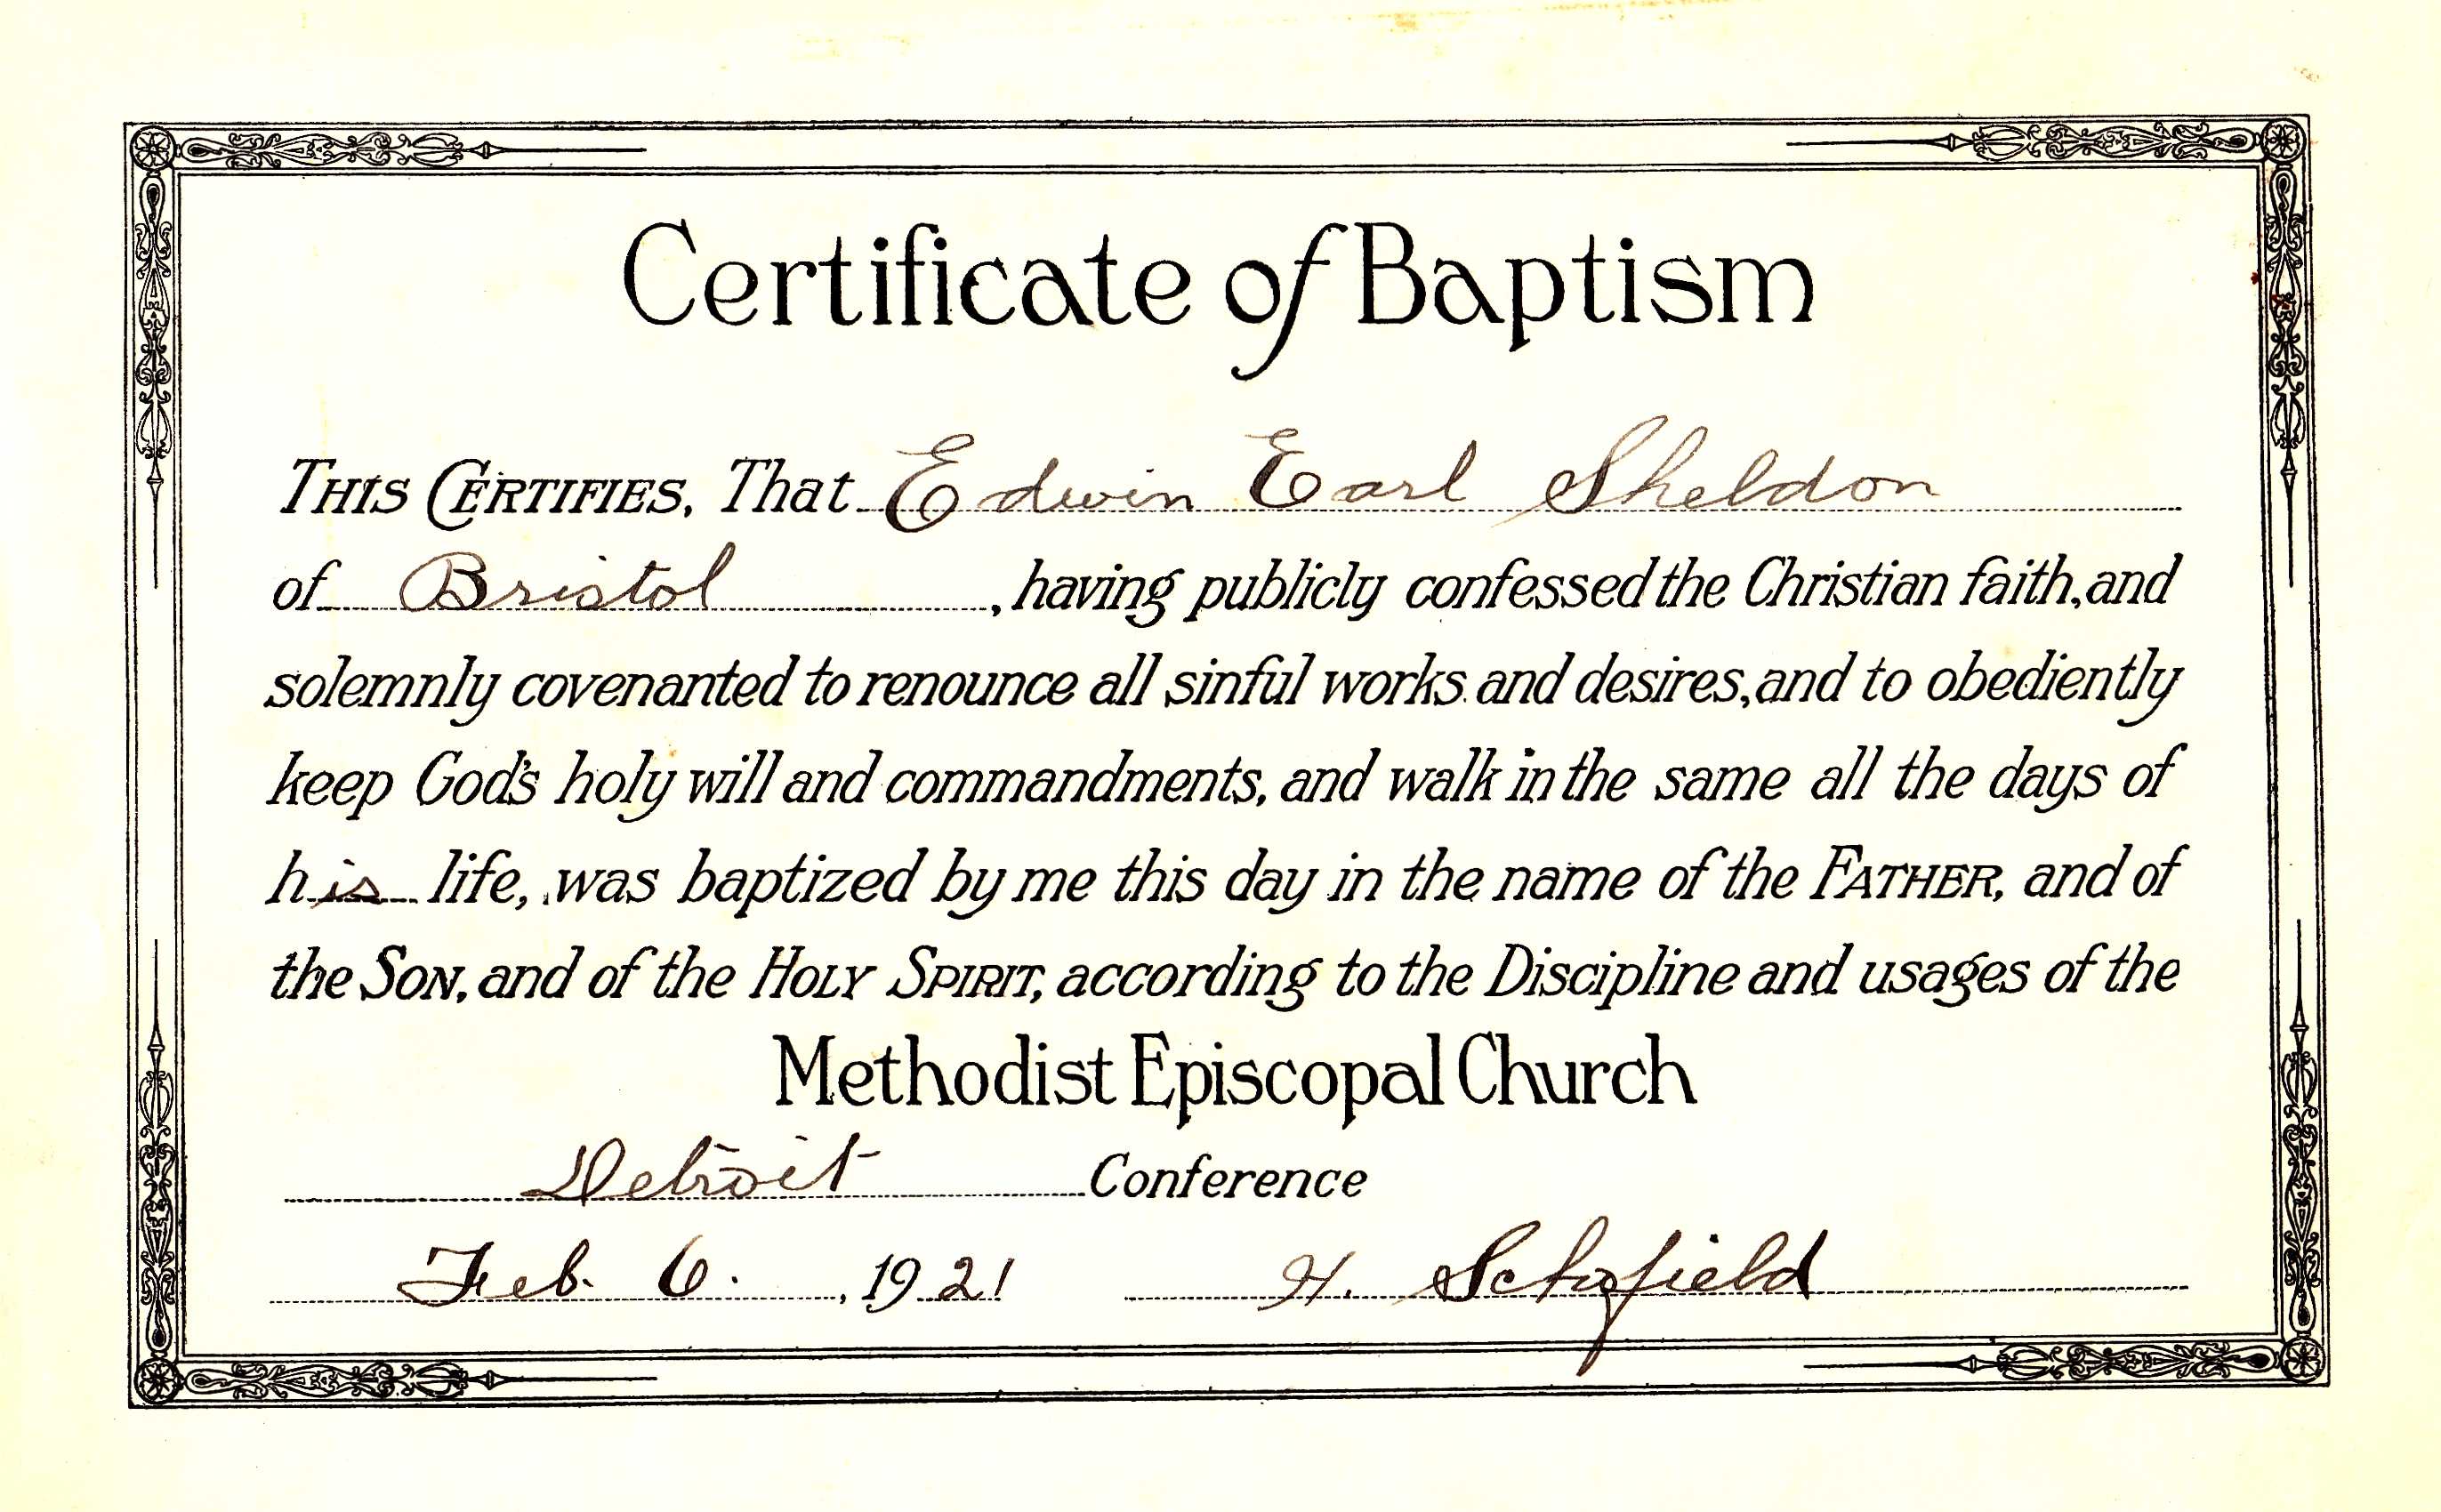 Certificate of Baptism
THIS CERTIFIES, That Edwin Earl Sheldon
of Bristol, having publicly confessed the Christian faith, and
solemnly covenanted to renounce all sinful works and desires, and to obediently
keep God's holy will and commandments, and walk in the same all the days of
his life, was baptized by me this day in the name of the FATHER, and of
the SON, and of the HOLY SPIRIT, according to the Discipline and usages of the
Methodist Episcopal Church
Detroit Conference
Feb. 6. , 1921 H. Schofield